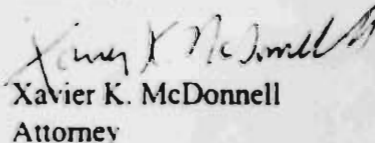 Xavier K McDonnell
Xavier K. McDonnell
Attorney